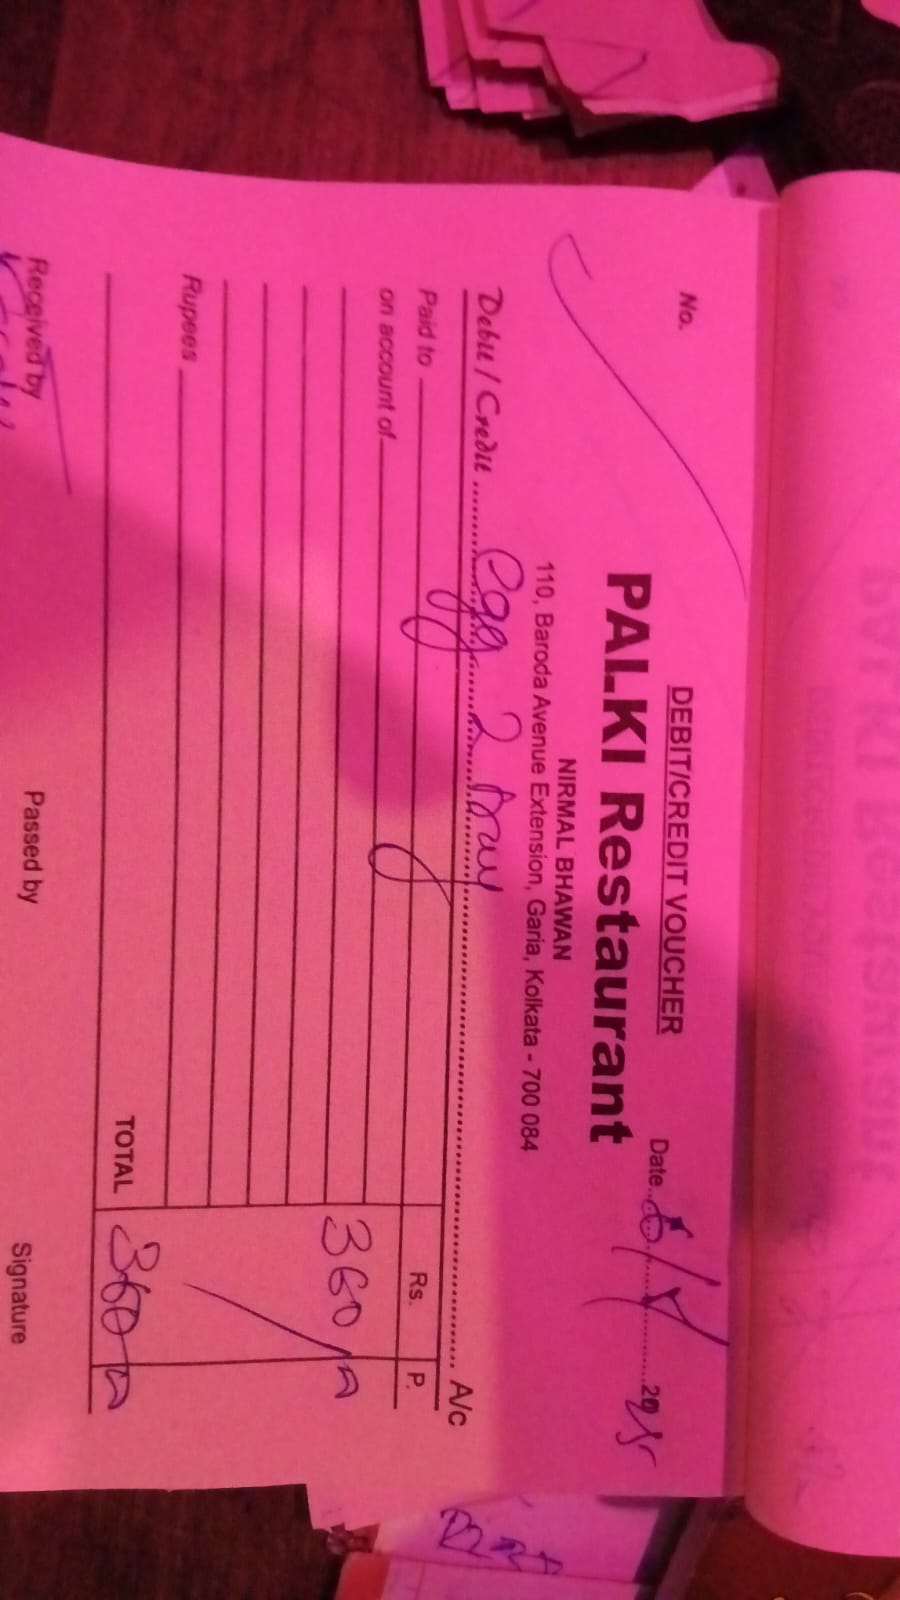 No.
DEBIT/CREDIT VOUCHER
PALKI Restaurant
Date
NIRMAL BHAWAN
110, Baroda Avenue Extension, Garia, Kolkata - 700 084
Debit / Credit egg 2 tray A/c
Paid to Rs. P.
on account of
360
Rupees
TOTAL 360
Received by Passed by Signature